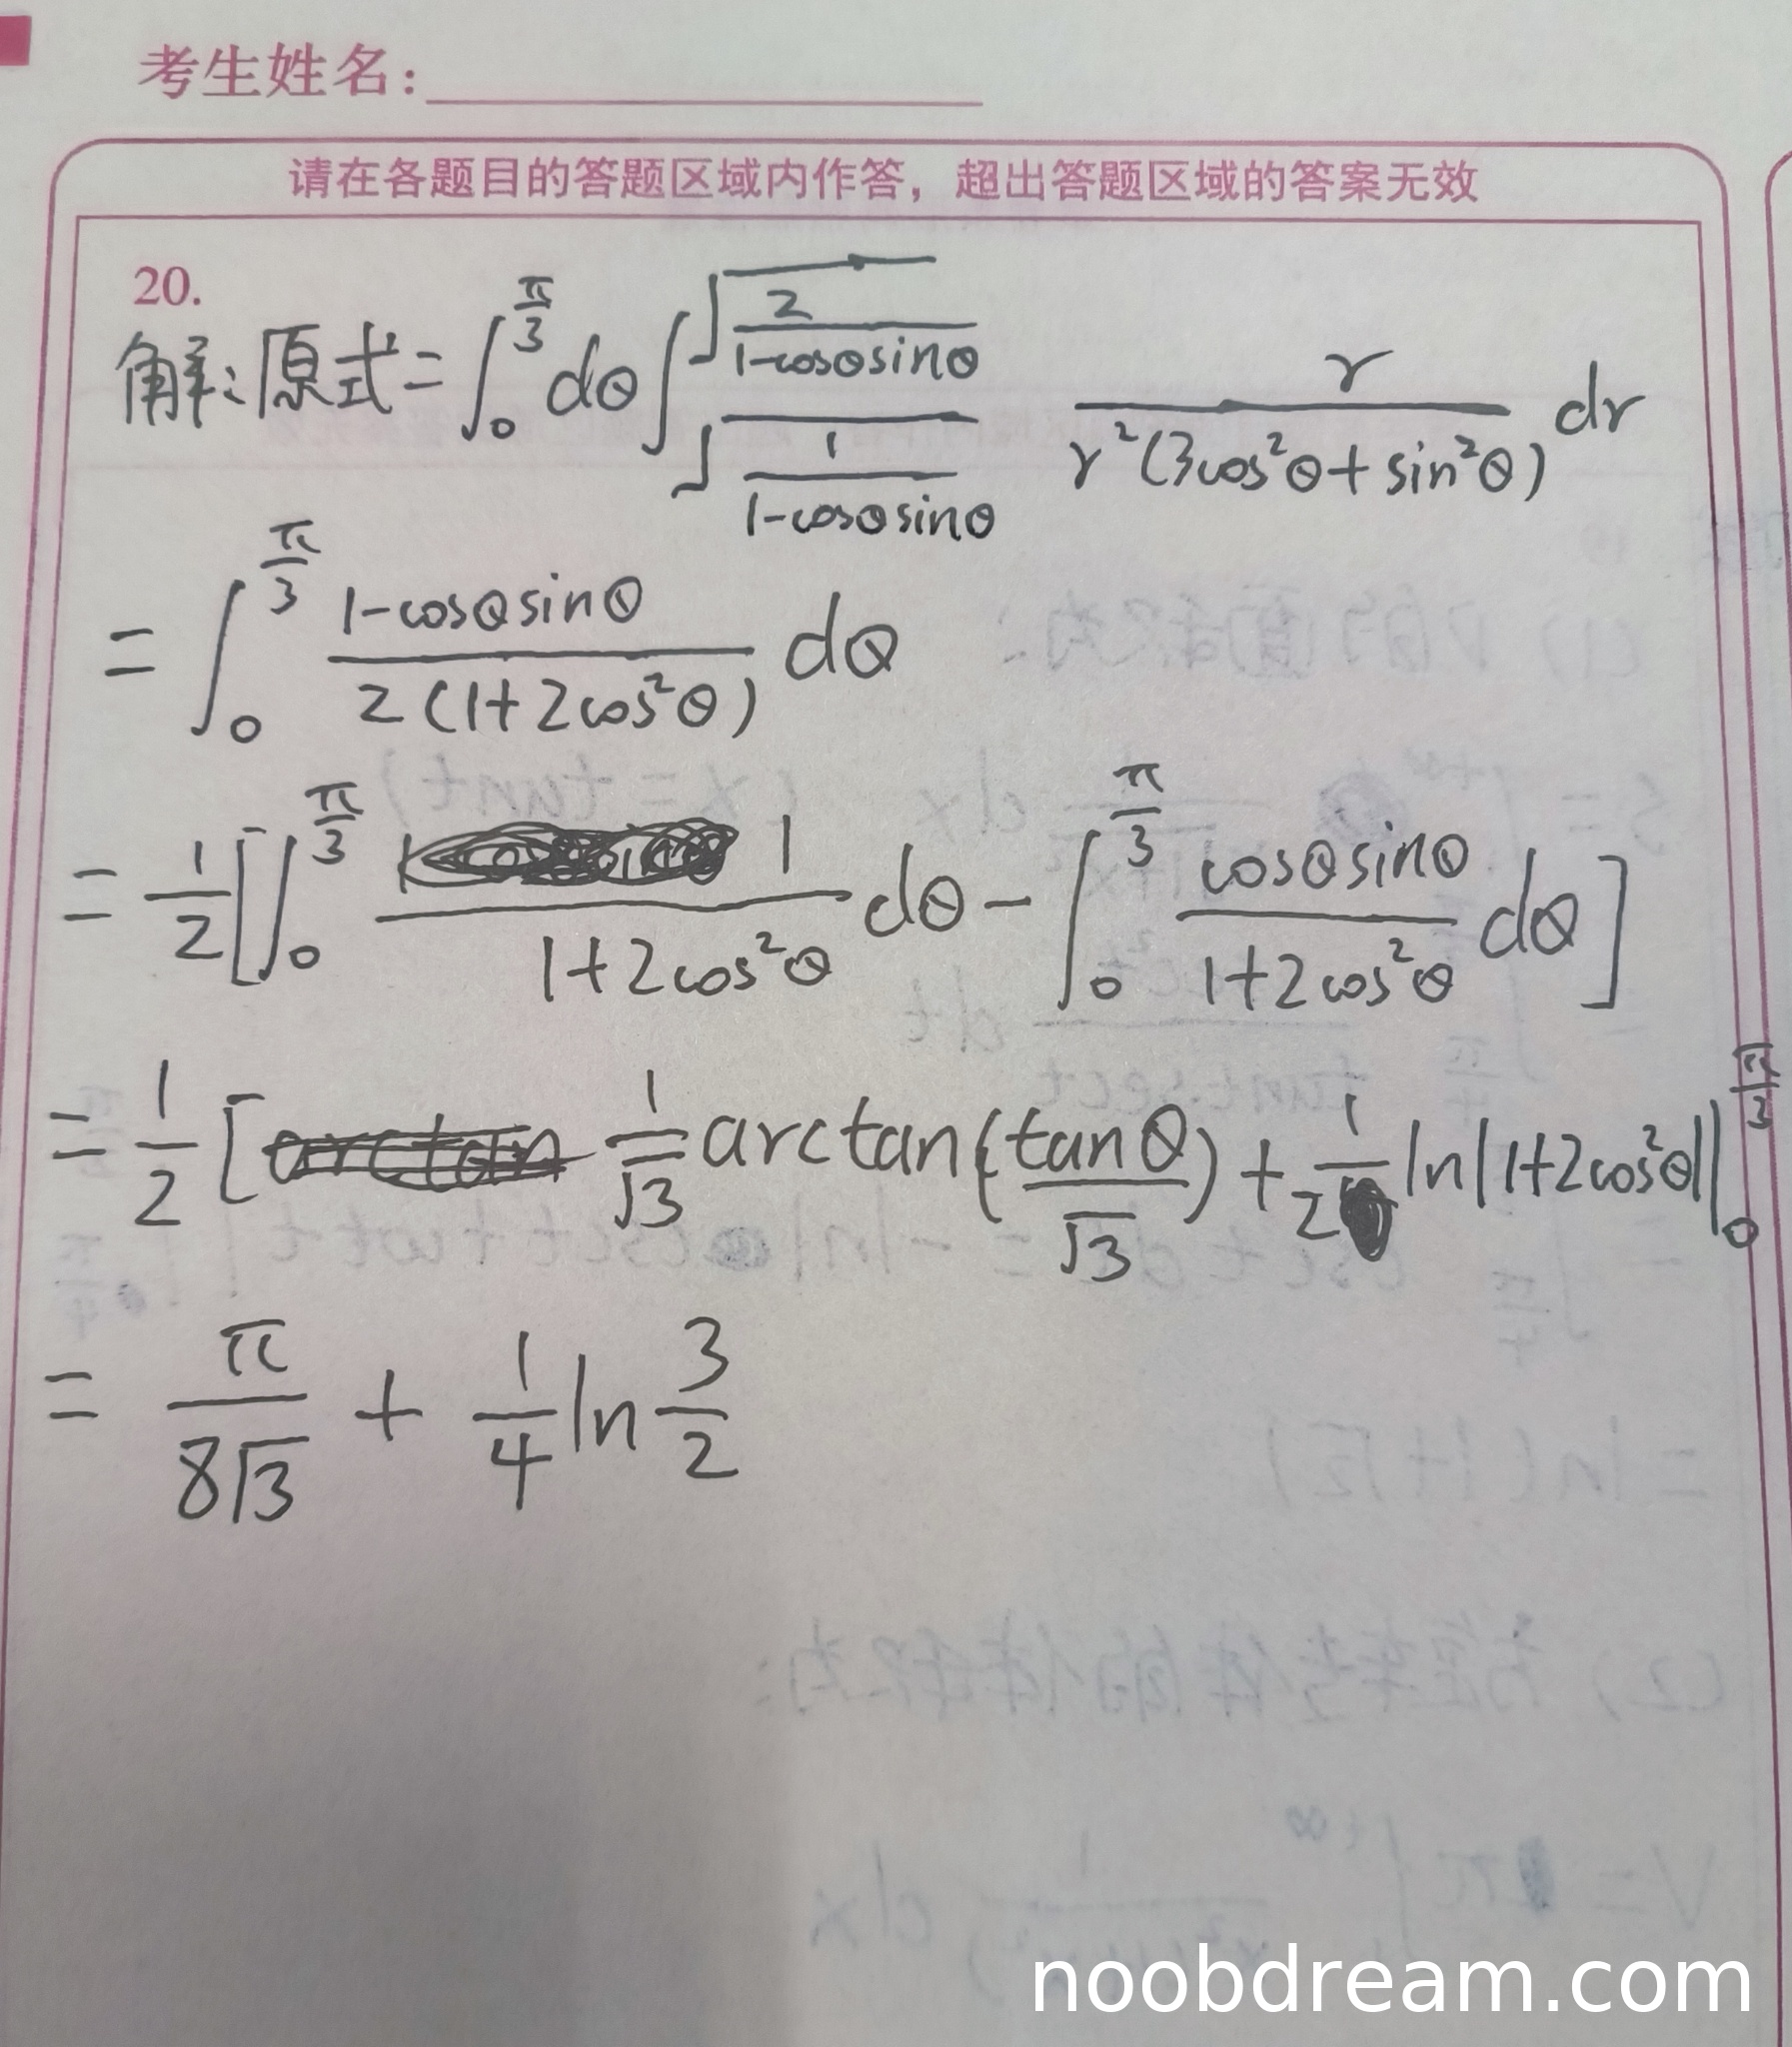 考生姓名:
请在各题目的答题区域内作答，超出答题区域的答案无效
20.
解:原式=∫_0^{π/3} dθ ∫_{√(1/(1-cosθsinθ))}^{√(2/(1-cosθsinθ))} r/(r²(3cos²θ+sin²θ)) dr
=∫_0^{π/3} (1-cosθsinθ)/(2(1+2cos²θ)) dθ
=1/2[∫_0^{π/3} 1/(1+2cos²θ) dθ-∫_0^{π/3} cosθsinθ/(1+2cos²θ) dθ]
=1/2[1/√3 arctan(tanθ/√3)+1/2 ln|1+2cos²θ||_0^{π/3}
=π/(8√3)+1/4 ln 3/2
noobdream.com